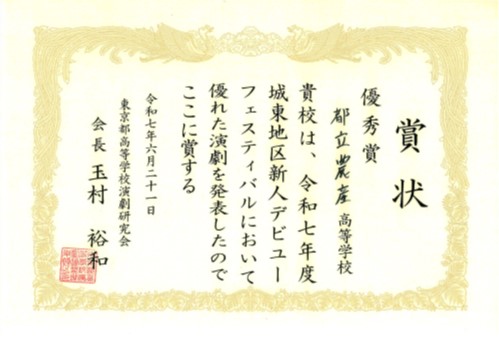 賞状
優秀賞
都立農産高等学校
貴校は、令和七年度
城東地区新人デビュー
フェスティバルにおいて
優れた演劇を発表したので
ここに賞する
令和七年六月二十一日
東京都高等学校演劇研究会
会長 玉村 裕和